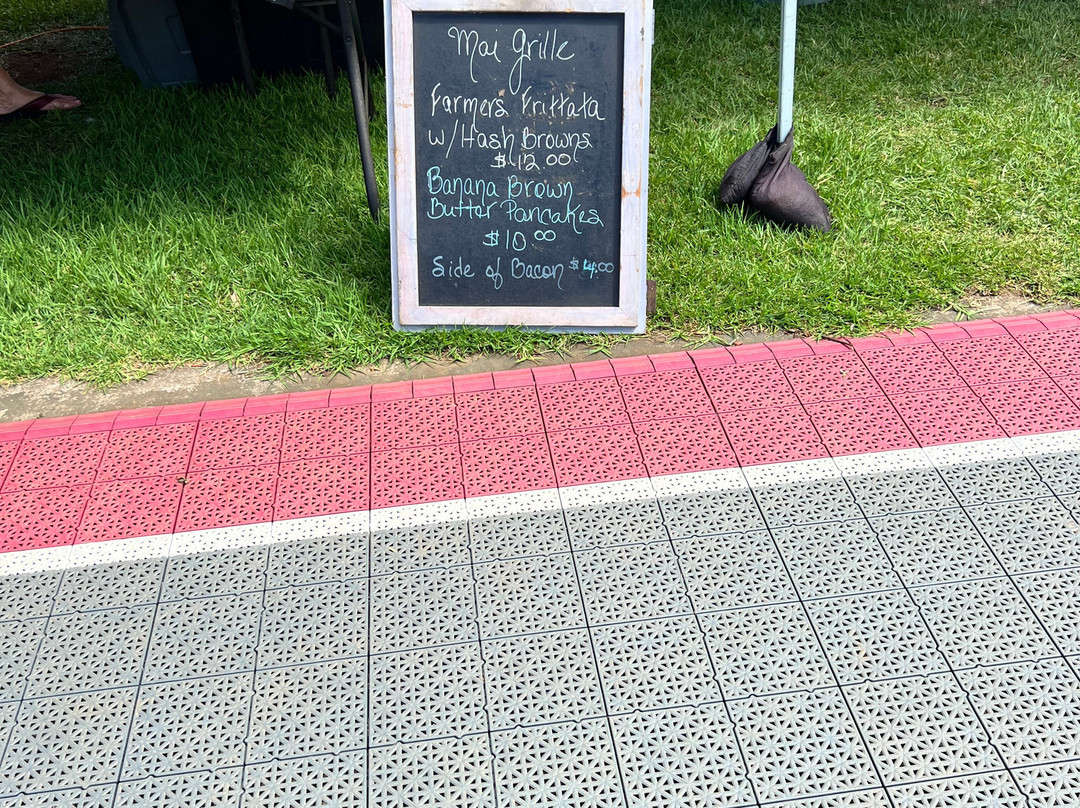 Mai Grille
Farmers Frittata
w/Hash Browns
$12.00
Banana Brown
Butter Pancakes
$10.00
Side of Bacon $4.00